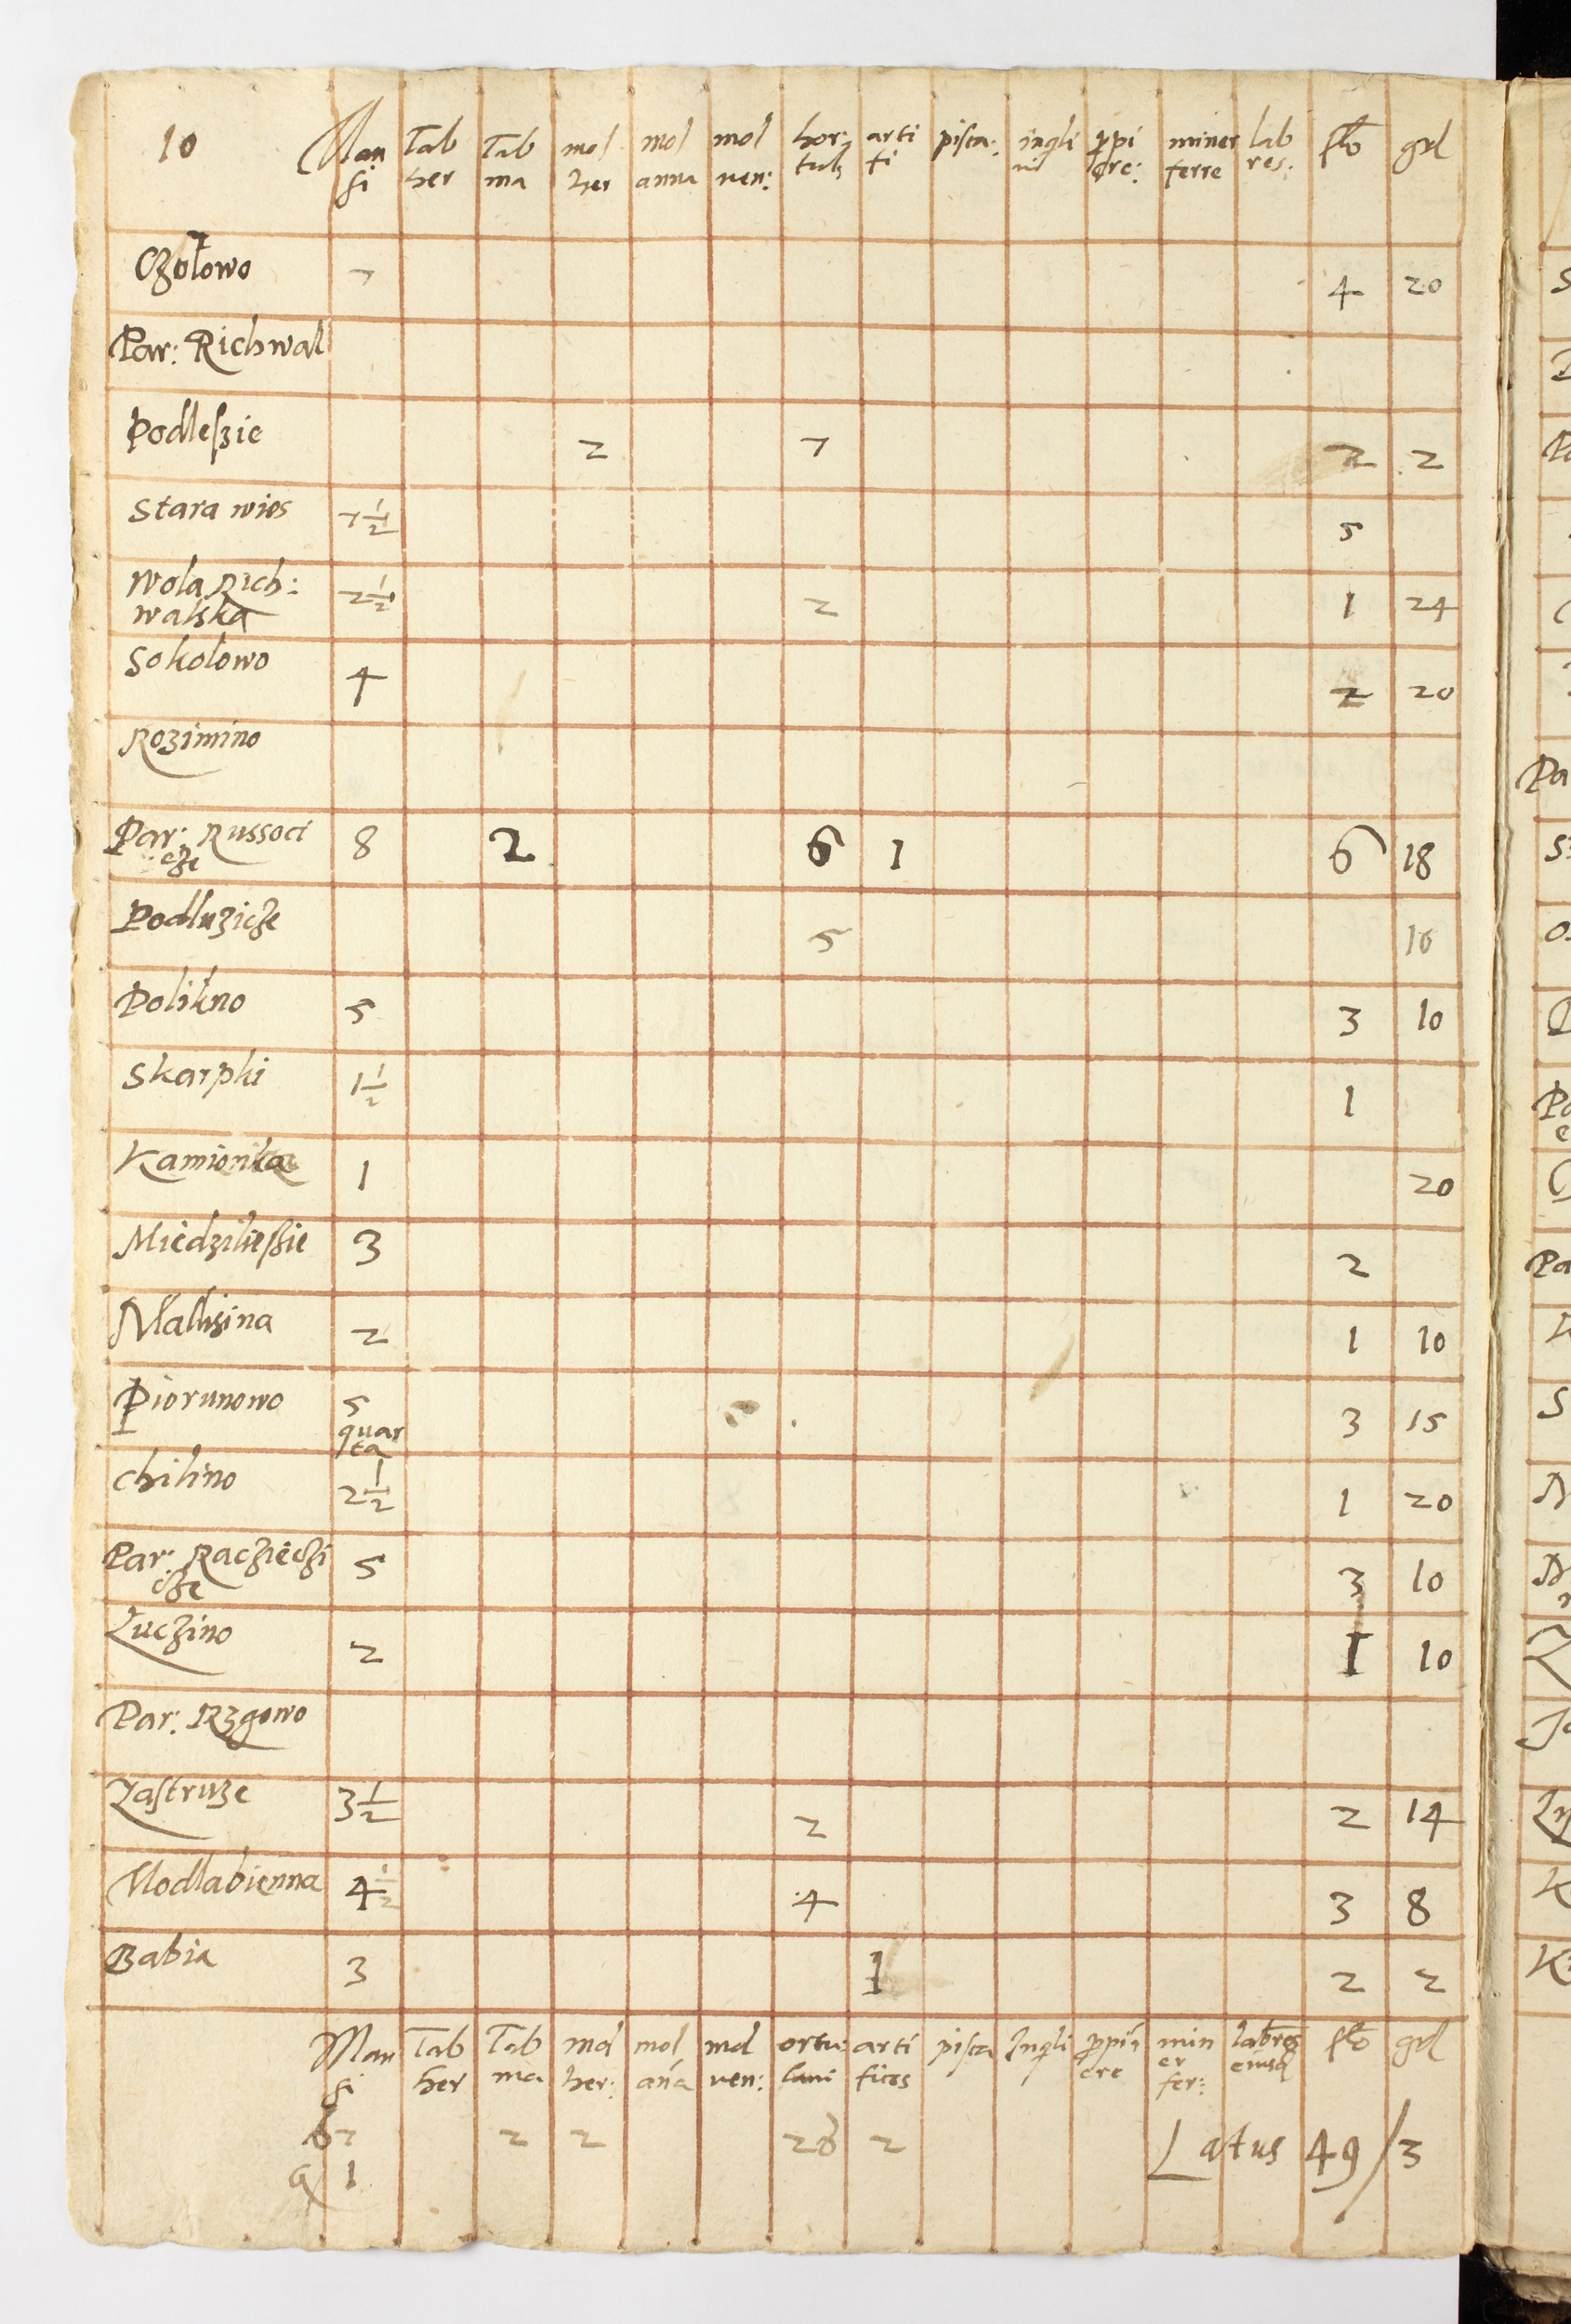 10 Man Tab Tab mol mol mol hor: arti pisca: inqli ppi miner lab flo grl
si her ma her anna ven: tul: fi ni ere: terre res:
Czołowo 7 4 20
Par: Richwal
Podleszie 2 7 2 2
Stara wies 7 1/2 5
Wola Rich: 2 1/2 2 1 24
walska
Sokolowo 4 2 20
Rozimino
Par: Russoci 8 2 6 1 6 18
cze
Podluzicze 5 16
Polikno 5 3 10
Skarphi 1 1/2 1
Kamionka 1 20
Miedzilieszie 3 2
Mallisina 2 1 10
Piorunowo 5 3 15
quar
ta
Chilino 2 1/2 1 20
Par: Racziedzi 5 3 10
cze
Luczino 2 1 10
Par: Rzgowo
Zastruze 3 1/2 2 2 14
Modlabienna 4 1/2 4 3 8
Babia 3 1 2 2
Man Tab Tab mol mol mol ortu: arti pisca Inqli ppi min labres flo grl
si her ma her: aña ven: lani fices ere er eiusq
fer:
67 2 2 26 2 Latus 49/3
q 1